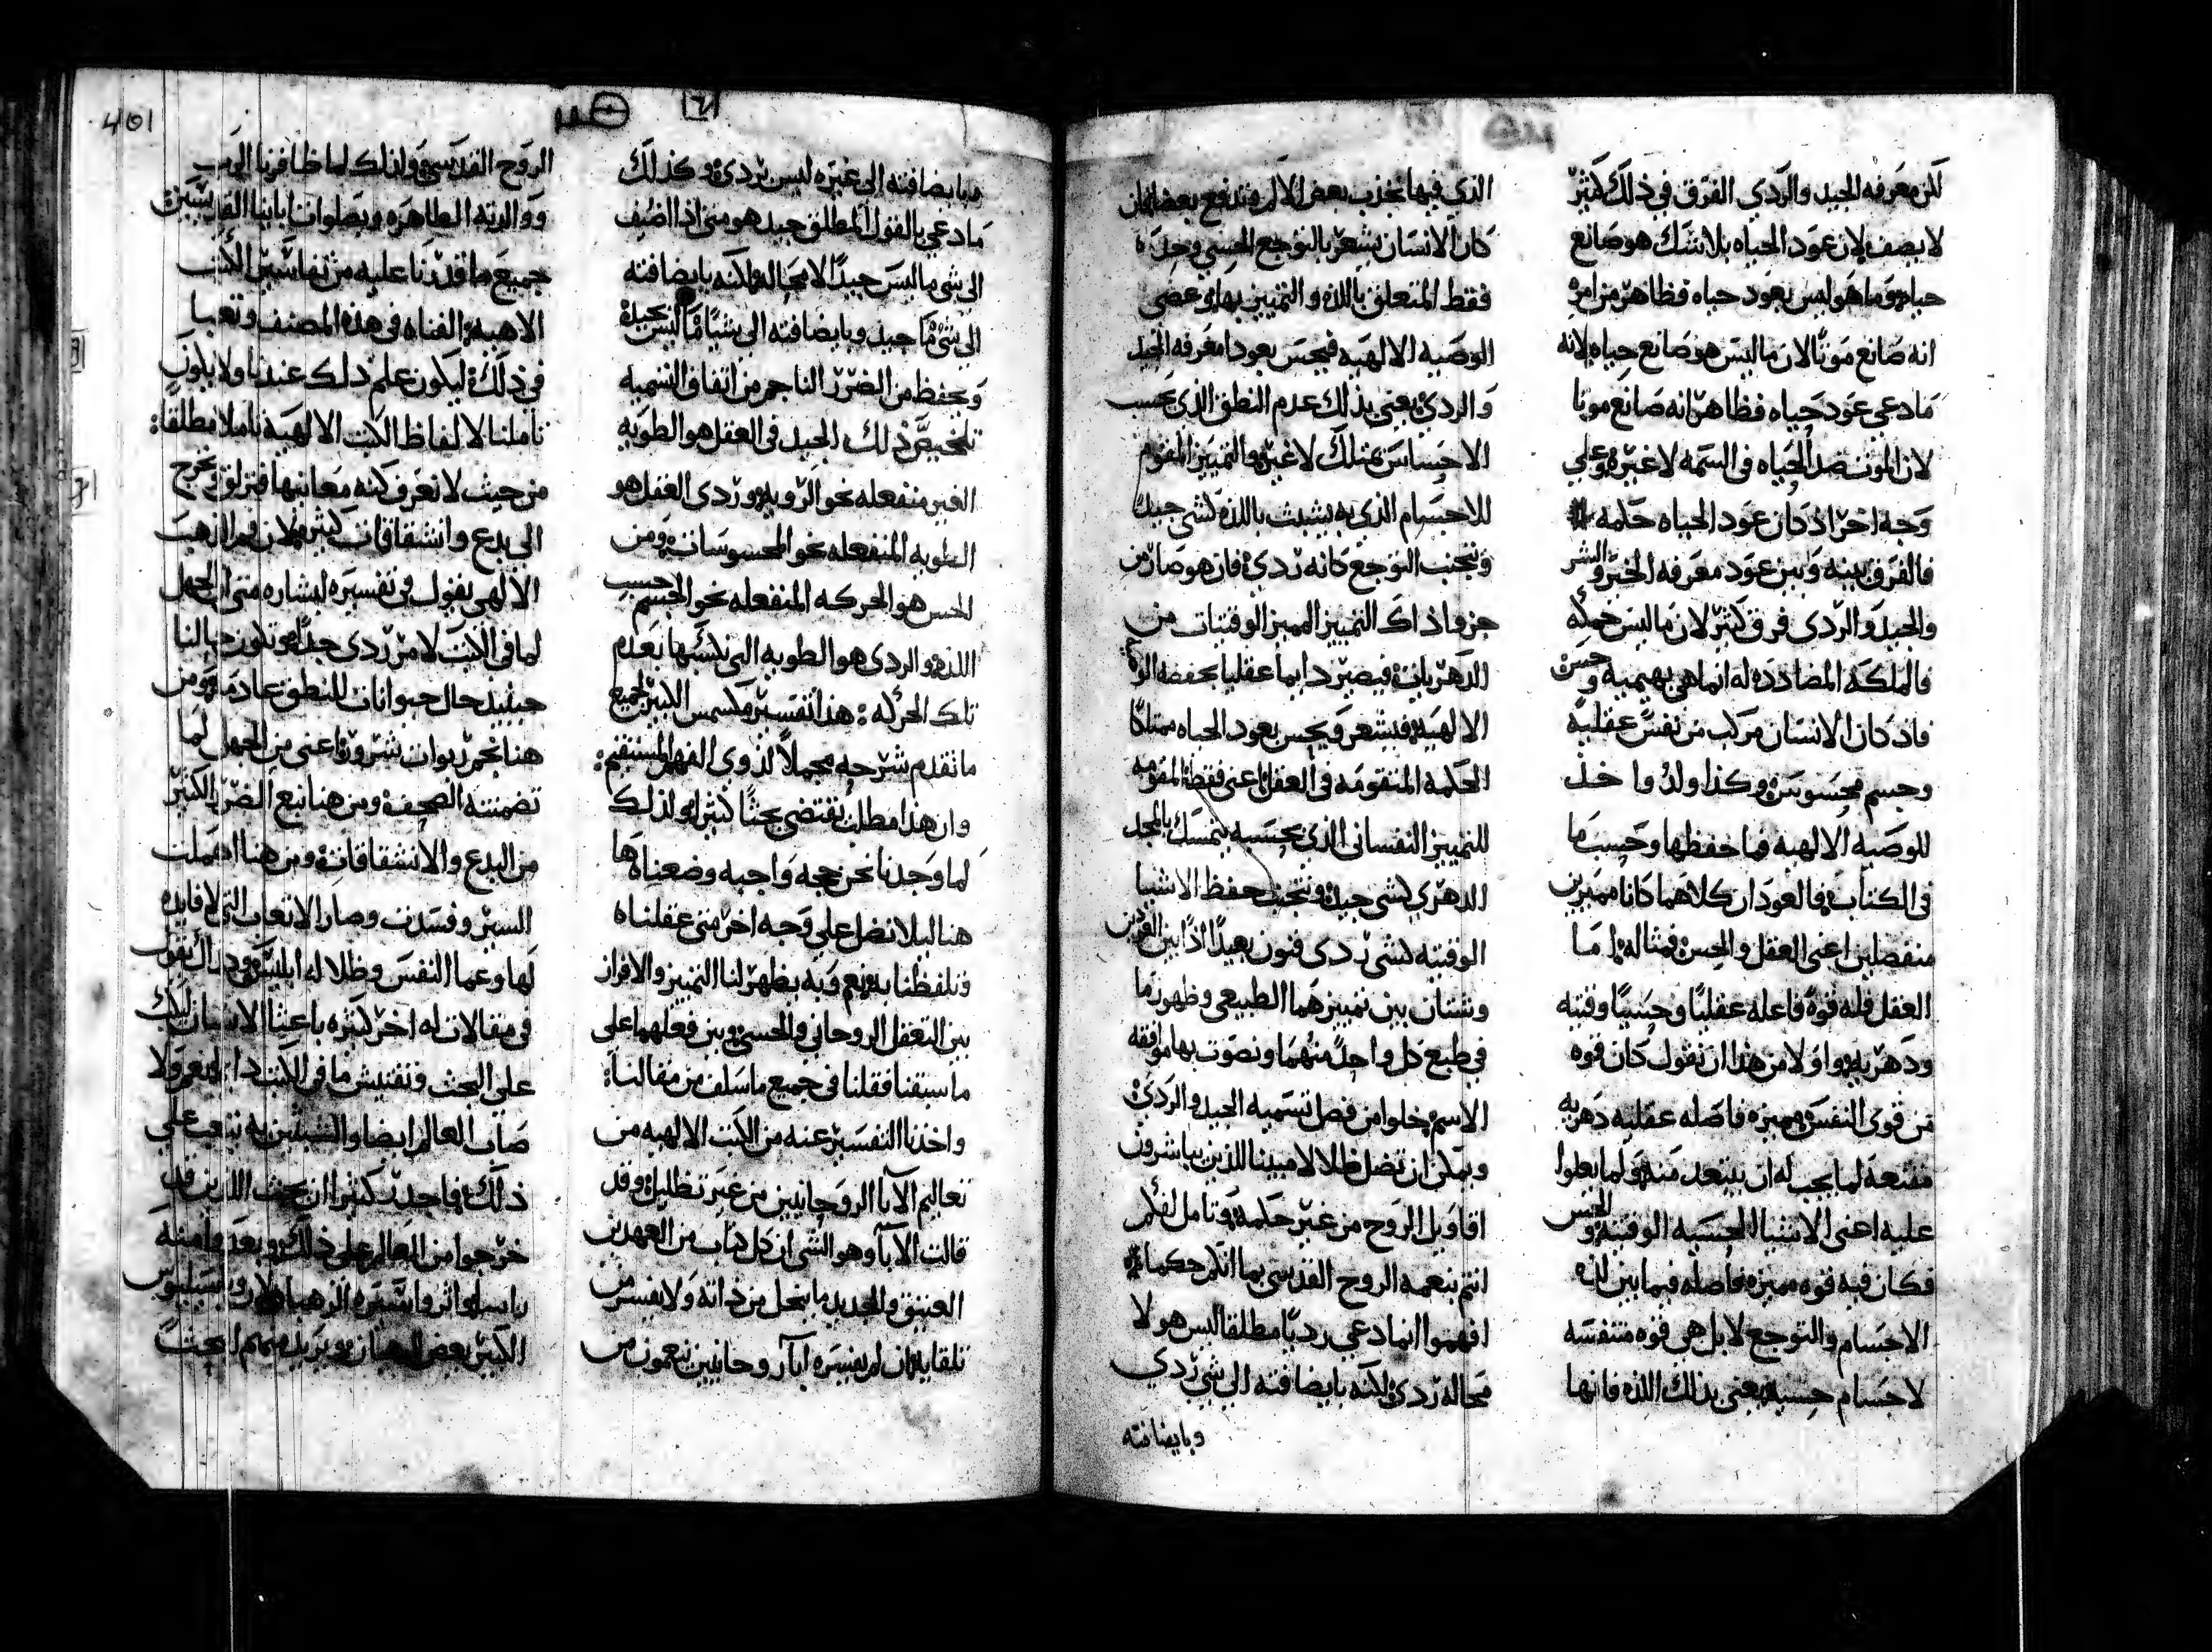 لكن معرفه الجيد والردي الفرق في ذلك كثير
لا يصف لان عود الحياه بلا شك هو صانع
حياه وما هو ليس بعود حياه فظاهر من امره
انه صانع موتا لان ما ليس هو صانع حياه لانه
ما دعي عود حياه فظاهر انه صانع موتا
لان الموت ضد الحياه في السمه لا غير وعلي
وجه اخر اذ كان عود الحياه حكمه
فالفرق بينه وبين عود معرفه الخير والشر
والجيد والردي فرق كثير لان ما ليس حكمه
فالملكه المضادده له انما هي بهيميه وحسن
فاذ كان الانسان مركب من نفس عقليه
وجسم محسوس وكذا ولد واخذ
للوصيه الالهيه فما حفظها وحسب ما
في الكتاب فالعودان كلاهما كانا مميزين
منفصلين اعني العقل والحس فمثاله اما
العقل فله قوه فاعله عقليا وحسيا وقتيه
ودهريه واولا من هذا ان نقول كان قوه
من قوي النفس مميزه فاصله عقليه دهريه
مقنعه لما يجب له ان يبتعد منه ولما يطوا
عليه اعني الاشيا الحسيه الوقتيه والحس
فكان فيه قوه مميزه فاصله فيما بين لذه
الاجسام والتوجع لا بل هي قوه متنفسه
لاجسام حسيه يعني بذلك اللذه فانها
الذي فيها تجذب بعض الالم وتدفع بعضا فان
كان الانسان يشعر بالتوجع الحسي وحده
فقط المتعلق باللذه والتمييز بها وعصي
الوصيه الالهيه فيحس بعود معرفه الجيد
والردي يعني بذلك عدم النطق الذي بحسب
الاحساس بمثلك لا غيره والتمييز المقوم
للاجسام الذي به يتشبث باللذه كشي جيد
ويتجنب التوجع كانه ردي فان هو صار من
جزو اذاك التمييز المميز الوقتيات من
الدهريات فيصير دايما عقليا بحفضه الوصيه
الالهيه فيشعر ويحس بعود الحياه ممتلكا
الحكمه المتقومه في العقل اعني فقط المقومه
للتمييز النفساني الذي بحسبه يتمسك بالمجد
الدهري كشي جيد ويتجنب حفظ الاشيا
الوقتيه كشي ردي فنون بعيدا اذا بين العودين
وشتان بين تمييزهما الطبيعي وظهورما
في طبع كل واحد منهما ونصوت بها موافقه
الاسم خلوا من فصل تسميه الجيد والردي
ويمكن ان تضل ظلالا مبينا للذين يباشرون
اقاويل الروح من غير حكمه وتامل لكن
انتم بنعمه الروح القدسي بما انكم حكما
افهموا انما دعي رديا مطلقا ليس هو لا
محاله ردي لكنه بايضافته الي شي ردي
وبايضافته
ص
401
وبايضافته الي غيره ليس بردي وكذلك
ما دعي بالقول المطلق جيد هو متي اذا اضيف
الي شي ما ليس جيدا لا محاله لكنه بايضافته
الي شي ما جيد وبايضافته الي شيا ما ليس بجيد
وتحفظ من الضرر الناجم من اتفاق التسميه
تلخيص ذلك الجيد في العقل هو الطويه
الغير منفعله نحو الرويه وردي العقل هو
الطويه المنفعله نحو المحسوسات ومن
الحس هو الحركه المنفعله نحو الجسم حسب
اللذه والردي هو الطويه التي تكسبها بعدم
تلك الحركه : هذا تفسير مكسمس الكبير لجميع
ما تقدم شرحه مجملا لذوي الفهم المستقيم :
وان هذا مطلب يقتضي بحثا كثيرا ولذلك
لما وجدنا نحن حجه واجبه وضعناها
هنا ليلا نضل علي وجه اخر متي عقلناه
وتلفظنا به نعم وبه يظهر لنا التمييز والافراز
بين التعقل الروحاني والحسي وبين فعلهما علي
ما سبقنا فقلنا في جميع ما سلف من مقالنا :
واخذنا التفسير عنه من الكتب الالهيه من
تعاليم الابا الروحانيين من غير تظليل وقد
قالت الابا وهو الشي ان كل كتاب من العهدين
العتيق والجديد ما ينحل من ذاته ولا يفسر من
تلقايه ان لم يفسره ابا روحانيين بنعمون من
الروح القدسي ولذلك لما ظافرنا الرب
ووالدته الطاهره وبصلوات ابانيا القديسين
جميع ما قدرنا عليه من تفاسير الكتب
الالهيه القناه في هذه المصنف وتعبنا
في ذلك ليكون علم ذلك عندنا ولا يكون
تاملنا لالفاظ الكتب الالهيه تاملا مطلقا :
من حيث لا نعرف كنه معانيها فنزلق ونخرج
الي بدع وانشقاقات كثيره لان فم الذهب
الالهي يقول في تفسيره لبشاره متي ان الجهل
لما في الكتب لامر ردي جدا وتكون حالنا
حينيد حال حيوانات للنطق عادمه ومن
هنا نجم ربوات شرور اعني من الجهل لما
تضمنته الصحف ومن هنا نبع الضرر الكثير
من البدع والانشقاقات ومن هنا اهملت
السير وفسدت وصار الاتعاب التي لا فايده
لها وعما النفس وظلاله ابليس وذلك يقول
في مقالات له اخر كثيره باعثا الانسان لينكب
علي البحث وتفتيش ما في الكتب دايما نعم ولا
صاب العالم ايضا والمتشبثين به نتعب علي
ذلك فاجدر كثيرا ان يحث اللذين قد
خرجوا من العالم علي ذلك وبعد وامنه
باسيليوس
الكبير بعض الرهبان ويريد منهم ابحثا